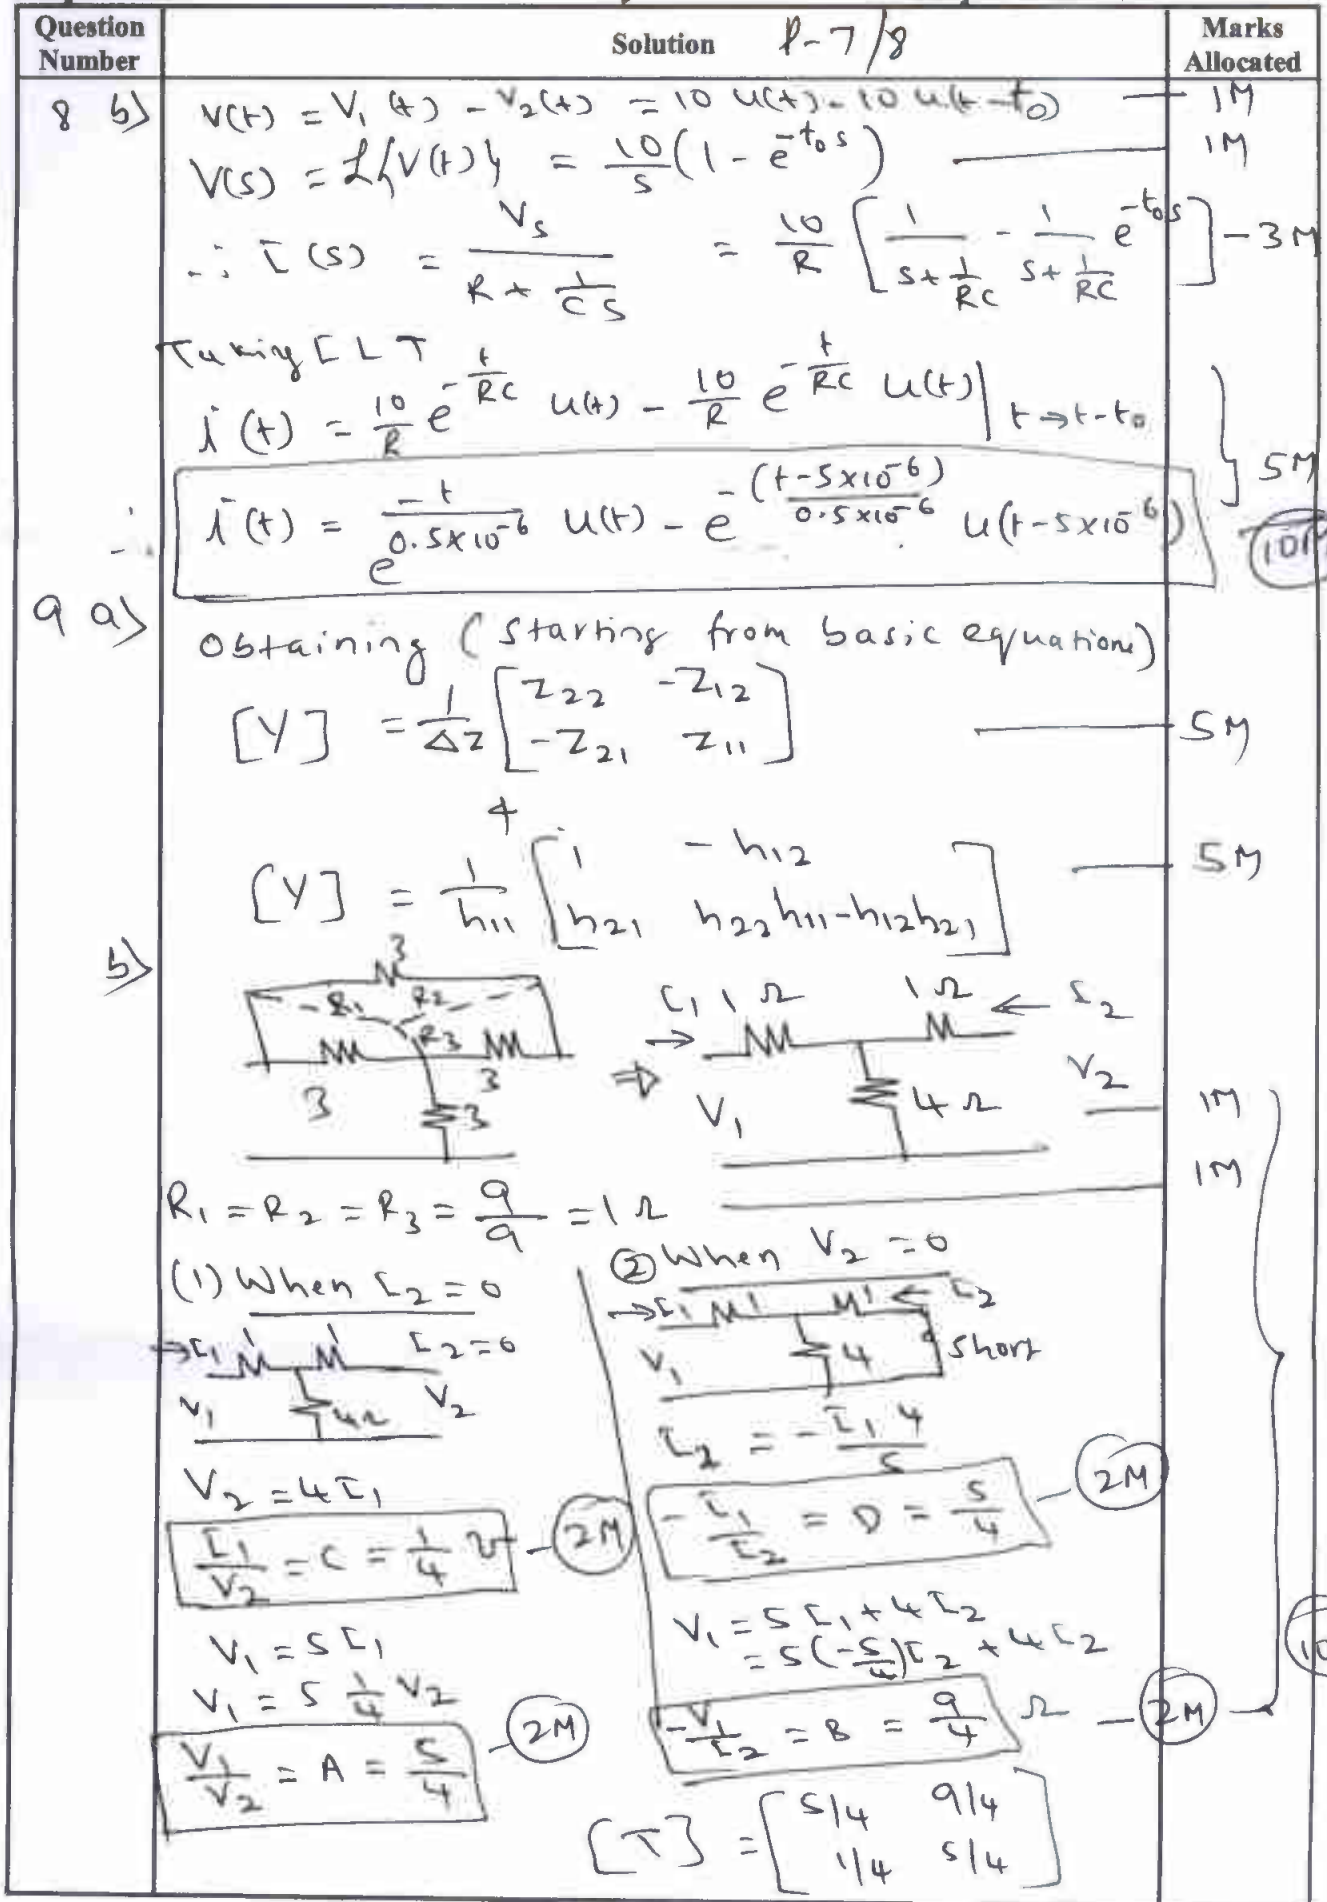 Question Number
Solution P-7/8
Marks Allocated
8 b) V(t) = V₁(t) - V₂(t) = 10 u(t) - 10 u(t-t₀) — 1M
V(s) = ℒ{V(t)} = 10/s (1 - e^(-t₀s)) — 1M
∴ I(s) = Vs / (R + 1/(CS)) = 10/R [1/(s + 1/RC) - 1/(s + 1/RC) e^(-t₀s)] - 3M
Taking ILT
i(t) = 10/R e^(-t/RC) u(t) - 10/R e^(-t/RC) u(t)| t→t-t₀
∴ i(t) = e^(-t/(0.5×10^-6)) u(t) - e^(-(t-5×10^-6)/(0.5×10^-6)) u(t-5×10^-6) } 5M
10M
9 a) Obtaining (starting from basic equations)
[Y] = 1/ΔZ [Z₂₂ -Z₁₂; -Z₂₁ Z₁₁] — 5M
4
[Y] = 1/h₁₁ [1 -h₁₂; h₂₁ h₂₂h₁₁-h₁₂h₂₁] — 5M
b) 3
R₁ R₂ R₃
3 3 3
⇒ I₁ 1Ω 1Ω ← I₂
V₁ 4Ω V₂ — 1M
R₁ = R₂ = R₃ = 9/9 = 1Ω — 1M
(1) When I₂ = 0
→I₁ 1 1 I₂=0
V₁ 4Ω V₂
V₂ = 4I₁
I₁/V₂ = C = 1/4 ℧ - 2M
V₁ = 5I₁
V₁ = 5 1/4 V₂
V₁/V₂ = A = 5/4 - 2M
② When V₂ = 0
→I₁ 1 1 ← I₂
V₁ 4 Short
I₂ = -I₁4/5
-I₁/I₂ = D = 5/4 - 2M
V₁ = 5I₁ + 4I₂
= 5(-5/4)I₂ + 4I₂
-V₁/I₂ = B = 9/4 Ω - 2M
[T] = [5/4 9/4; 1/4 5/4]